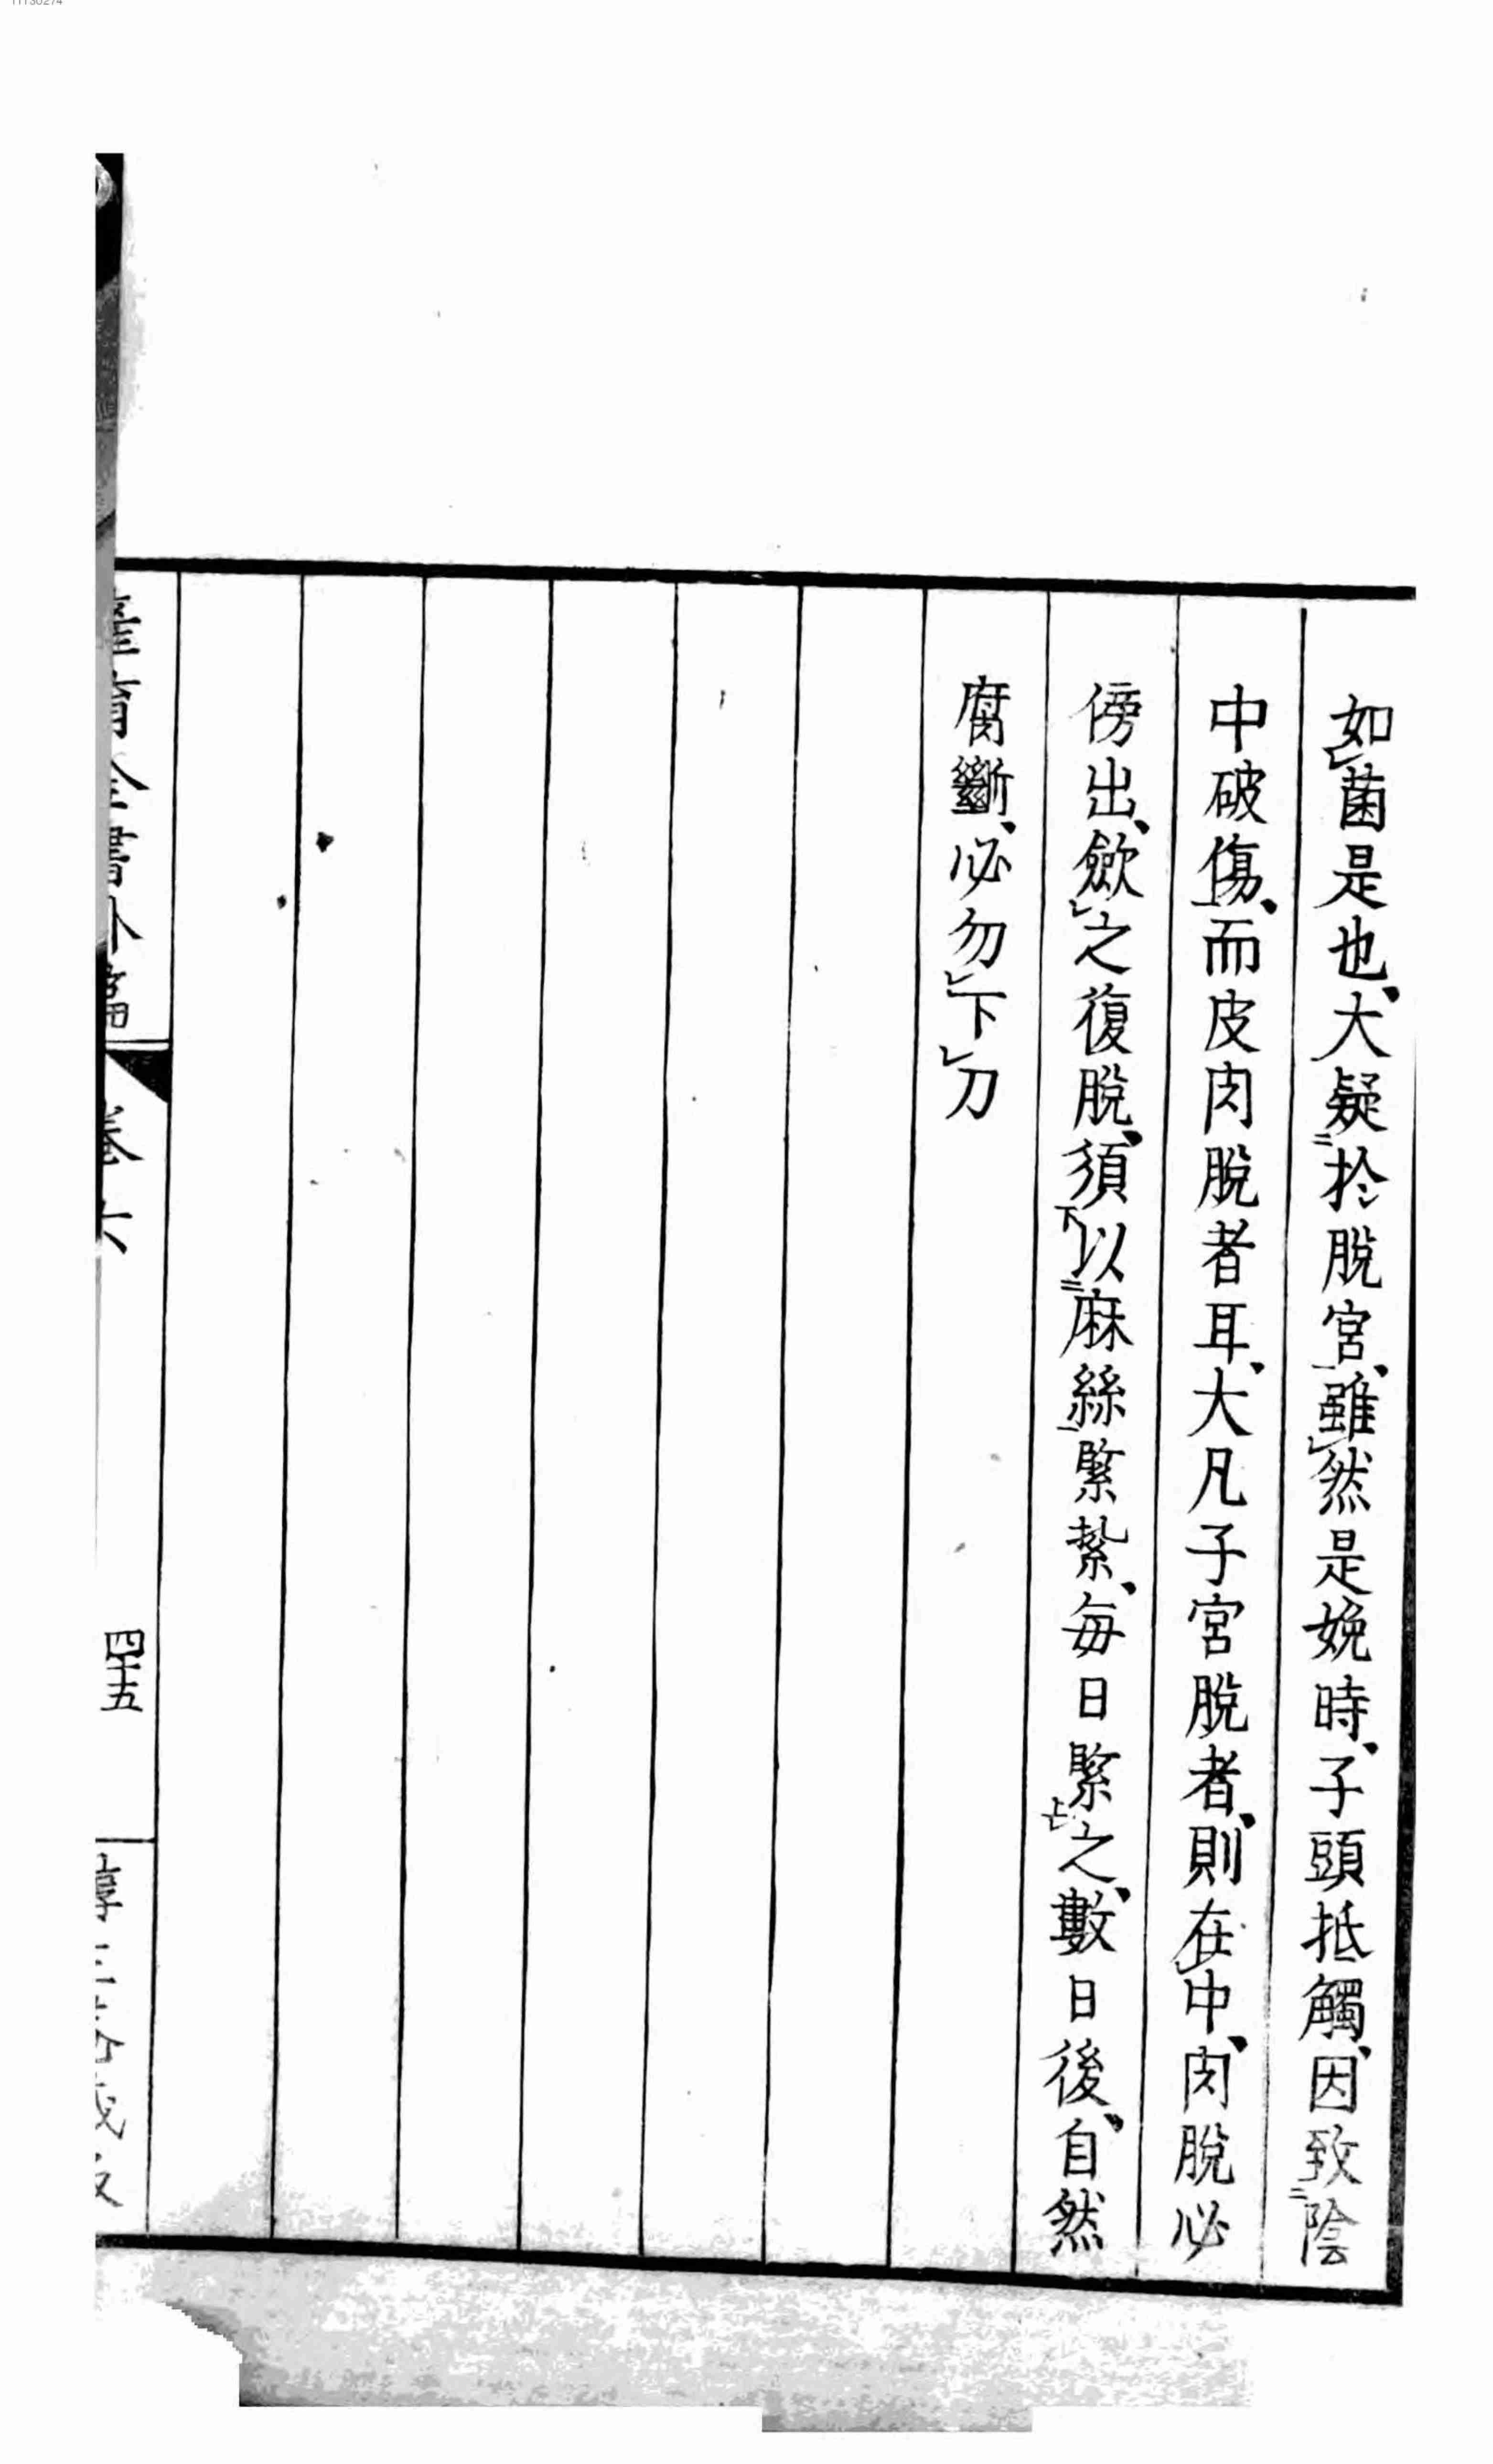 如菌是也、大疑於脫宮、雖然是娩時、子頭抵觸、因致陰
中破傷、而皮肉脫者耳、大凡子宮脫者、則在中、肉脫必
傍出、斂之復脫、須以麻絲緊紮、每日緊之、數日後、自然
腐斷、必勿下刀
產育全書外篇
卷六
四十五